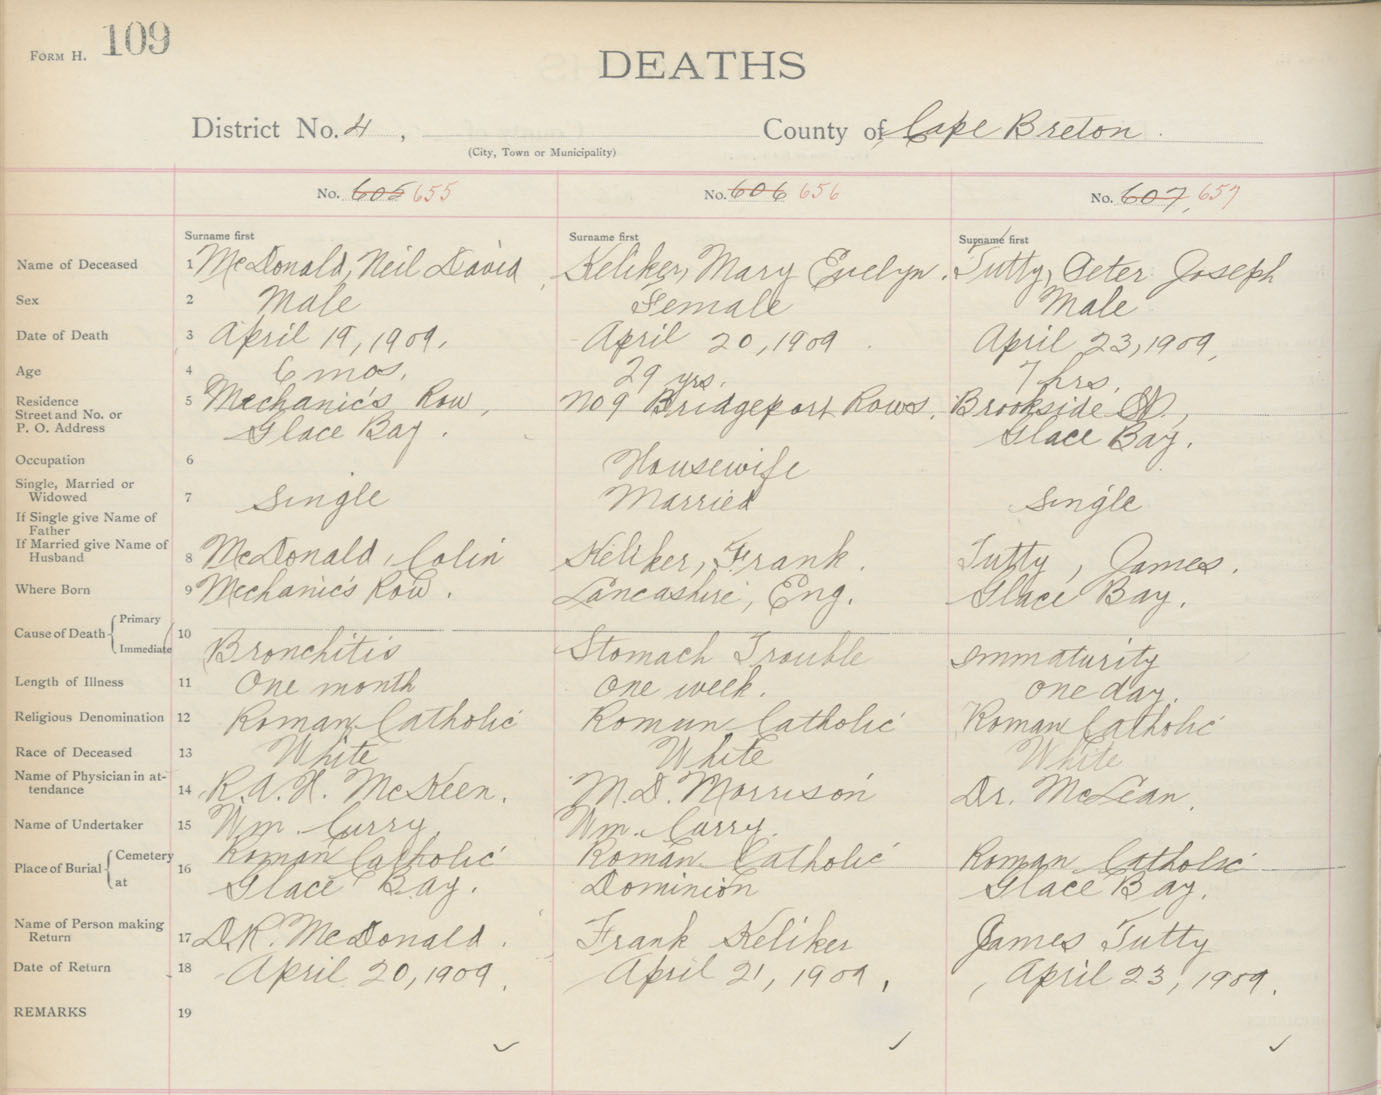 FORM H. 109
DEATHS
District No. 4, County of Cape Breton.
(City, Town or Municipality)
No. 605 655 No. 606 656 No. 607, 657
Surname first Surname first Surname first
Name of Deceased 1 McDonald, Neil David Keliker, Mary Evelyn. Tutty, Peter Joseph
Sex 2 Male Female Male
Date of Death 3 April 19, 1909. April 20, 1909. April 23, 1909,
Age 4 6 mos. 29 yrs. 7 hrs.
Residence
Street and No. or 5 Mechanic's Row, No 9 Bridgeport Rows. Brookside St.,
P. O. Address Glace Bay. Glace Bay.
Occupation 6 Housewife
Single, Married or
Widowed 7 Single Married Single
If Single give Name of
Father
If Married give Name of
Husband 8 McDonald, Colin Keliker, Frank. Tutty, James.
Where Born 9 Mechanic's Row. Lancashire, Eng. Glace Bay.
Cause of Death Primary
Immediate 10 Bronchitis Stomach Trouble Immaturity
Length of Illness 11 One month One week. One day.
Religious Denomination 12 Roman Catholic Roman Catholic Roman Catholic
Race of Deceased 13 White White White
Name of Physician in at-
tendance 14 R.A.H. McKeen. M.D. Morrison Dr. McLean.
Name of Undertaker 15 Wm. Curry. Wm. Curry.
Place of Burial Cemetery 16 Roman Catholic Roman Catholic Roman Catholic
at Glace Bay. Dominion Glace Bay.
Name of Person making
Return 17 D.R. McDonald. Frank Keliker James Tutty
Date of Return 18 April 20, 1909. April 21, 1909, April 23, 1909.
REMARKS 19